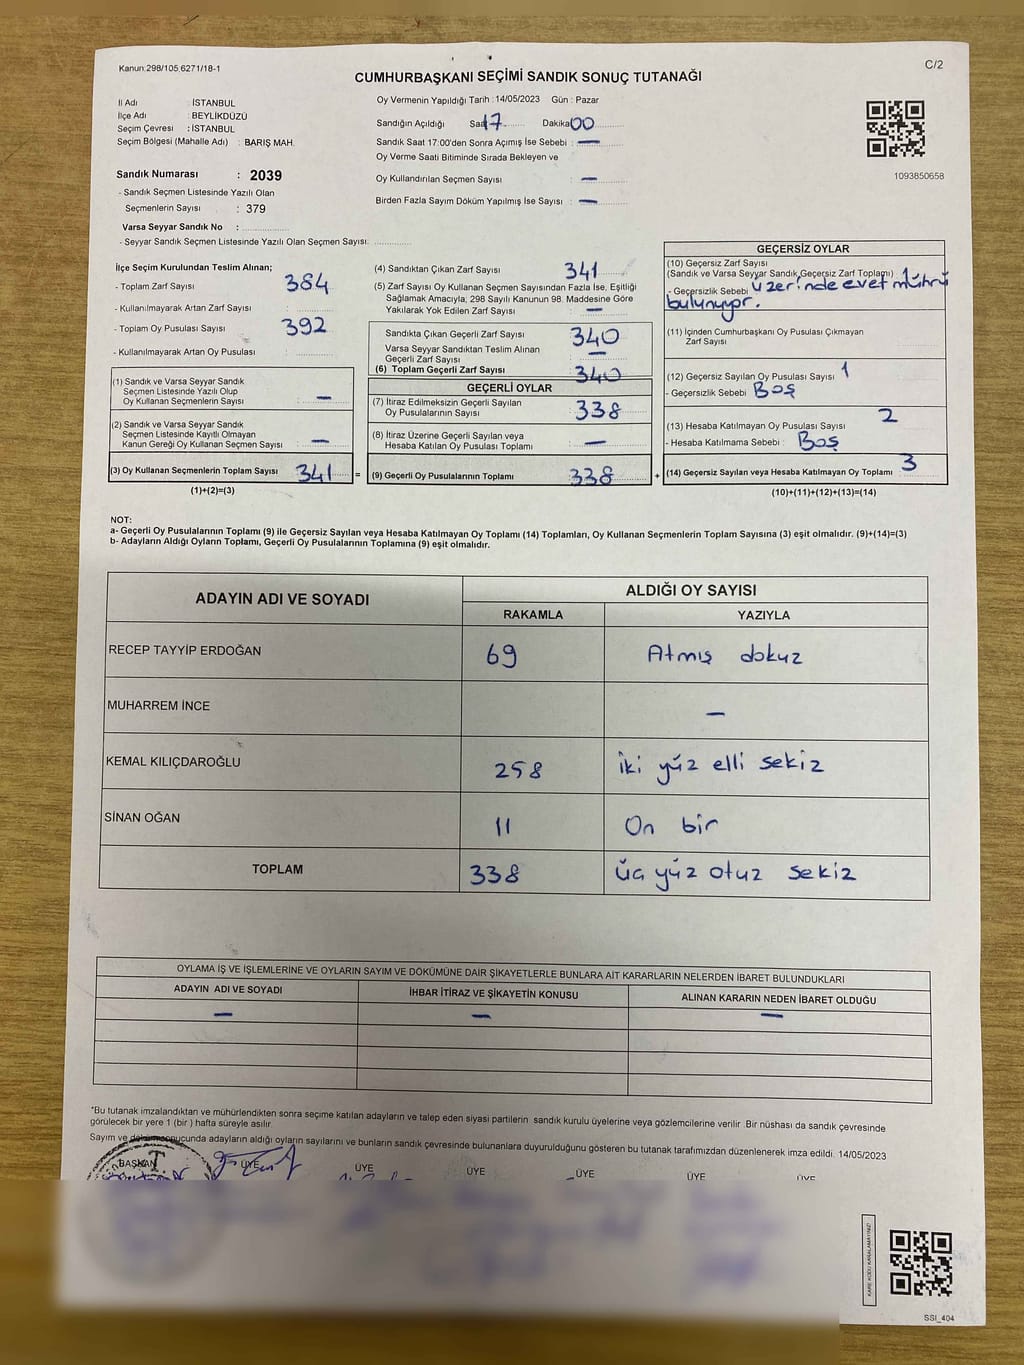 Kanun:298/105,6271/18-1
C/2
CUMHURBAŞKANI SEÇİMİ SANDIK SONUÇ TUTANAĞI
İl Adı : İSTANBUL
İlçe Adı : BEYLİKDÜZÜ
Seçim Çevresi : İSTANBUL
Seçim Bölgesi (Mahalle Adı) : BARIŞ MAH.
Sandık Numarası : 2039
- Sandık Seçmen Listesinde Yazılı Olan
Seçmenlerin Sayısı : 379
Varsa Seyyar Sandık No : ................
- Seyyar Sandık Seçmen Listesinde Yazılı Olan Seçmen Sayısı: ............
Oy Vermenin Yapıldığı Tarih :14/05/2023 Gün : Pazar
Sandığın Açıldığı Saat 17 Dakika 00
Sandık Saat 17:00'den Sonra Açımış İse Sebebi : —
Oy Verme Saati Bitiminde Sırada Bekleyen ve
Oy Kullandırılan Seçmen Sayısı : —
Birden Fazla Sayım Döküm Yapılmış İse Sayısı : —
1093850658
İlçe Seçim Kurulundan Teslim Alınan;
- Toplam Zarf Sayısı : 384
- Kullanılmayarak Artan Zarf Sayısı :
- Toplam Oy Pusulası Sayısı : 392
- Kullanılmayarak Artan Oy Pusulası :
(1) Sandık ve Varsa Seyyar Sandık
Seçmen Listesinde Yazılı Olup
Oy Kullanan Seçmenlerin Sayısı : —
(2) Sandık ve Varsa Seyyar Sandık
Seçmen Listesinde Kayıtlı Olmayan
Kanun Gereği Oy Kullanan Seçmen Sayısı : —
(3) Oy Kullanan Seçmenlerin Toplam Sayısı : 341 =
(1)+(2)=(3)
(4) Sandıktan Çıkan Zarf Sayısı : 341
(5) Zarf Sayısı Oy Kullanan Seçmen Sayısından Fazla İse, Eşitliği
Sağlamak Amacıyla, 298 Sayılı Kanunun 98. Maddesine Göre
Yakılarak Yok Edilen Zarf Sayısı : —
Sandıkta Çıkan Geçerli Zarf Sayısı : 340
Varsa Seyyar Sandıktan Teslim Alınan
Geçerli Zarf Sayısı : —
(6) Toplam Geçerli Zarf Sayısı : 340
GEÇERLİ OYLAR
(7) İtiraz Edilmeksizin Geçerli Sayılan
Oy Pusulalarının Sayısı : 338
(8) İtiraz Üzerine Geçerli Sayılan veya
Hesaba Katılan Oy Pusulası Toplamı : —
(9) Geçerli Oy Pusulalarının Toplamı : 338 +
GEÇERSİZ OYLAR
(10) Geçersiz Zarf Sayısı
(Sandık ve Varsa Seyyar Sandık Geçersiz Zarf Toplamı) 1
- Geçersizlik Sebebi Üzerinde evet mührü
bulunuyor.
(11) İçinden Cumhurbaşkanı Oy Pusulası Çıkmayan
Zarf Sayısı
(12) Geçersiz Sayılan Oy Pusulası Sayısı 1
- Geçersizlik Sebebi Boş
(13) Hesaba Katılmayan Oy Pusulası Sayısı : 2
- Hesaba Katılmama Sebebi : Boş
(14) Geçersiz Sayılan veya Hesaba Katılmayan Oy Toplamı : 3
(10)+(11)+(12)+(13)=(14)
NOT:
a- Geçerli Oy Pusulalarının Toplamı (9) ile Geçersiz Sayılan veya Hesaba Katılmayan Oy Toplamı (14) Toplamları, Oy Kullanan Seçmenlerin Toplam Sayısına (3) eşit olmalıdır. (9)+(14)=(3)
b- Adayların Aldığı Oyların Toplamı, Geçerli Oy Pusulalarının Toplamına (9) eşit olmalıdır.
ADAYIN ADI VE SOYADI
ALDIĞI OY SAYISI
RAKAMLA YAZIYLA
RECEP TAYYİP ERDOĞAN 69 Atmış dokuz
MUHARREM İNCE —
KEMAL KILIÇDAROĞLU 258 iki yüz elli sekiz
SİNAN OĞAN 11 On bir
TOPLAM 338 üç yüz otuz sekiz
OYLAMA İŞ VE İŞLEMLERİNE VE OYLARIN SAYIM VE DÖKÜMÜNE DAİR ŞİKAYETLERLE BUNLARA AİT KARARLARIN NELERDEN İBARET BULUNDUKLARI
ADAYIN ADI VE SOYADI İHBAR İTİRAZ VE ŞİKAYETİN KONUSU ALINAN KARARIN NEDEN İBARET OLDUĞU
— — —
*Bu tutanak imzalandıktan ve mühürlendikten sonra seçime katılan adayların ve talep eden siyasi partilerin sandık kurulu üyelerine veya gözlemcilerine verilir. Bir nüshası da sandık çevresinde
görülecek bir yere 1 (bir ) hafta süreyle asılır.
Sayım ve dökümü sonucunda adayların aldığı oyların sayılarını ve bunların sandık çevresinde bulunanlara duyurulduğunu gösteren bu tutanak tarafımızdan düzenlenerek imza edildi. 14/05/2023
BAŞKAN ÜYE ÜYE ÜYE ÜYE ÜYE ÜYE
KARE KODU KARALAMAYINIZ!
SSI_404